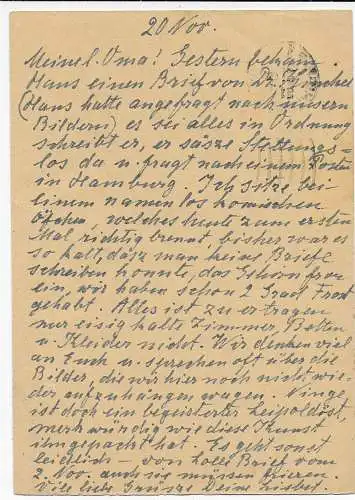 20 Nov.
Meine l. Oma! Gestern bekam
Hans einen Brief von Dr.
(Hans hatte angefragt nach unsern
Bildern) es sei alles in Ordnung
schreibt er, er säsze Stellungs=
los da u. fragt nach einem Posten
in Hamburg. Ich sitze bei
einem namenlos komischen
Öfchen, welches heute zum ersten
Mal richtig brennt, bisher war es
so kalt, dasz man keine Briefe
schreiben konnte, das Gehirn fror
ein, wir haben schon 2 Grad Frost
gehabt. Alles ist zu ertragen
nur eisig kalte Zimmer, Betten
u. Kleider nicht. Wir denken viel
an Euch u. sprechen oft über die
Bilder, die wir hier noch nicht wie-
der aufzuhängen wagen. Inge
ist doch ein begeisterter
merkwürdig wie diese Kunst
ihn gepackt hat. Es geht sonst
leidlich – von Brief vom
2. Nov. auch sie müssen frieren.
Viele liebe Grüsze Deine